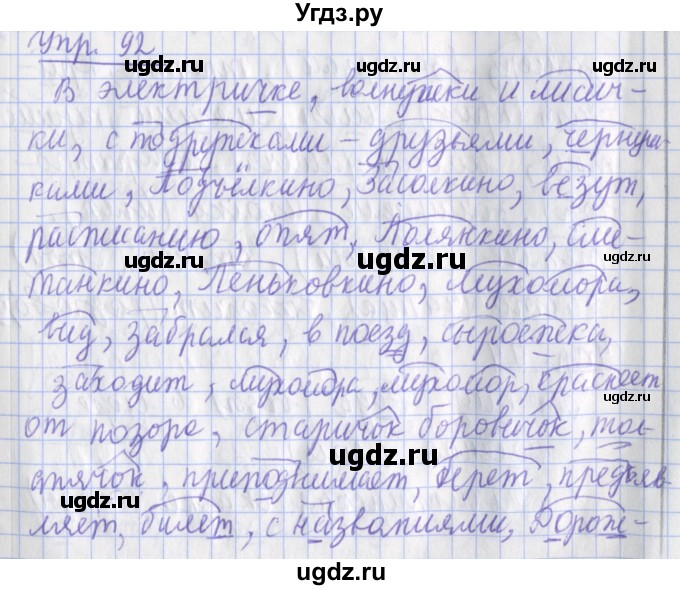 Угдз.ру
Упр. 92
В электричке, волнушки и лисич-
ки, с подружками - друзьями, чернуш-
ками, Подъёлкино, Засолкино, везут,
расписанию, опят, Полянкино, Сме-
танкино, Пеньковкино, Мухомора,
вид, забрался, в поезд, сыроежка,
заходит, мухомора, мухомор, краснеет
от позора, старичок боровичок, тол-
стячок, приподнимает, берет, предъяв-
ляет, билет, с названиями, Дорож-
ugdz.ru
ugdz.ru
ugdz.ru
ugdz.ru
ugdz.ru
ugdz.ru
ugdz.ru
ugdz.ru
ugdz.ru
ugdz.ru
ugdz.ru
ugdz.ru
ugdz.ru
ugdz.ru